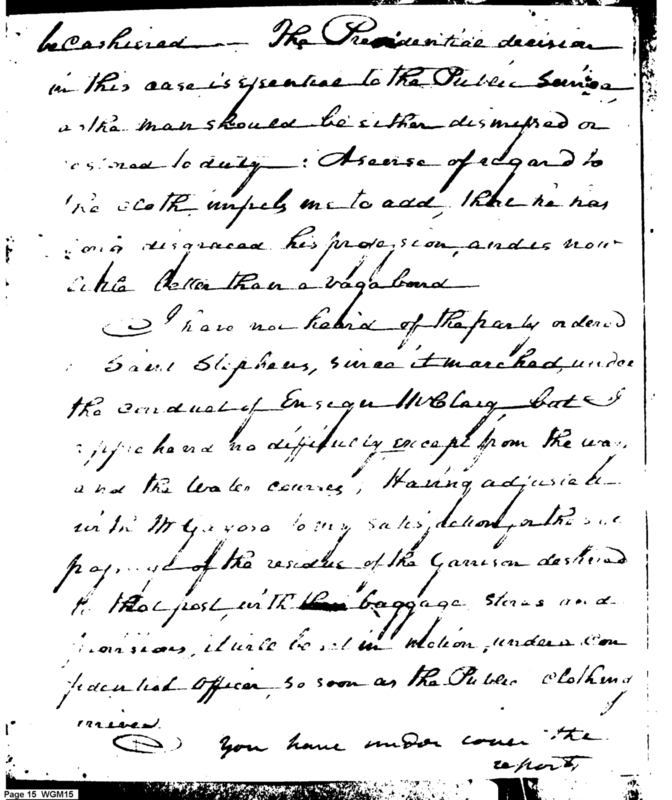 be Cashiered — The Presidential decision
in this case is essential to the Public Service,
as the man should be either dismissed or
restored to duty: A sense of regard to
the cloth, impels me to add, that he has
long disgraced his profession, and is now
little better than a vagabond
I have not heard of the party ordered
Saint Stephens, since it marched, under
the conduct of Ensign McClary, but I
apprehend no difficulty except from the way,
and the Water courses; Having adjusted
with Mr to my satisfaction, for the
of the residue of the Garrison destined
to that post, with baggage stores and
provisions, it will be set in motion, under a Con
fidential Officer, so soon as the Public Clothing
arrives
You have under cover the
report,
Page 15 WGM15